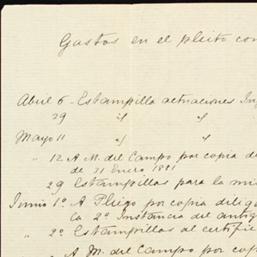 Gastos en el pleito con
Abril 6 - Estampilla actuaciones
" 29 " "
Mayo 11 " "
" 12 A M. del Campo por copia de
de 21 Enero 1881
" 29 Estampillas para la
Junio 1º A Pliego por copia dilig
la 2ª Instancia del antig
" 2º Estampillas al certific
A M. del Campo por cop